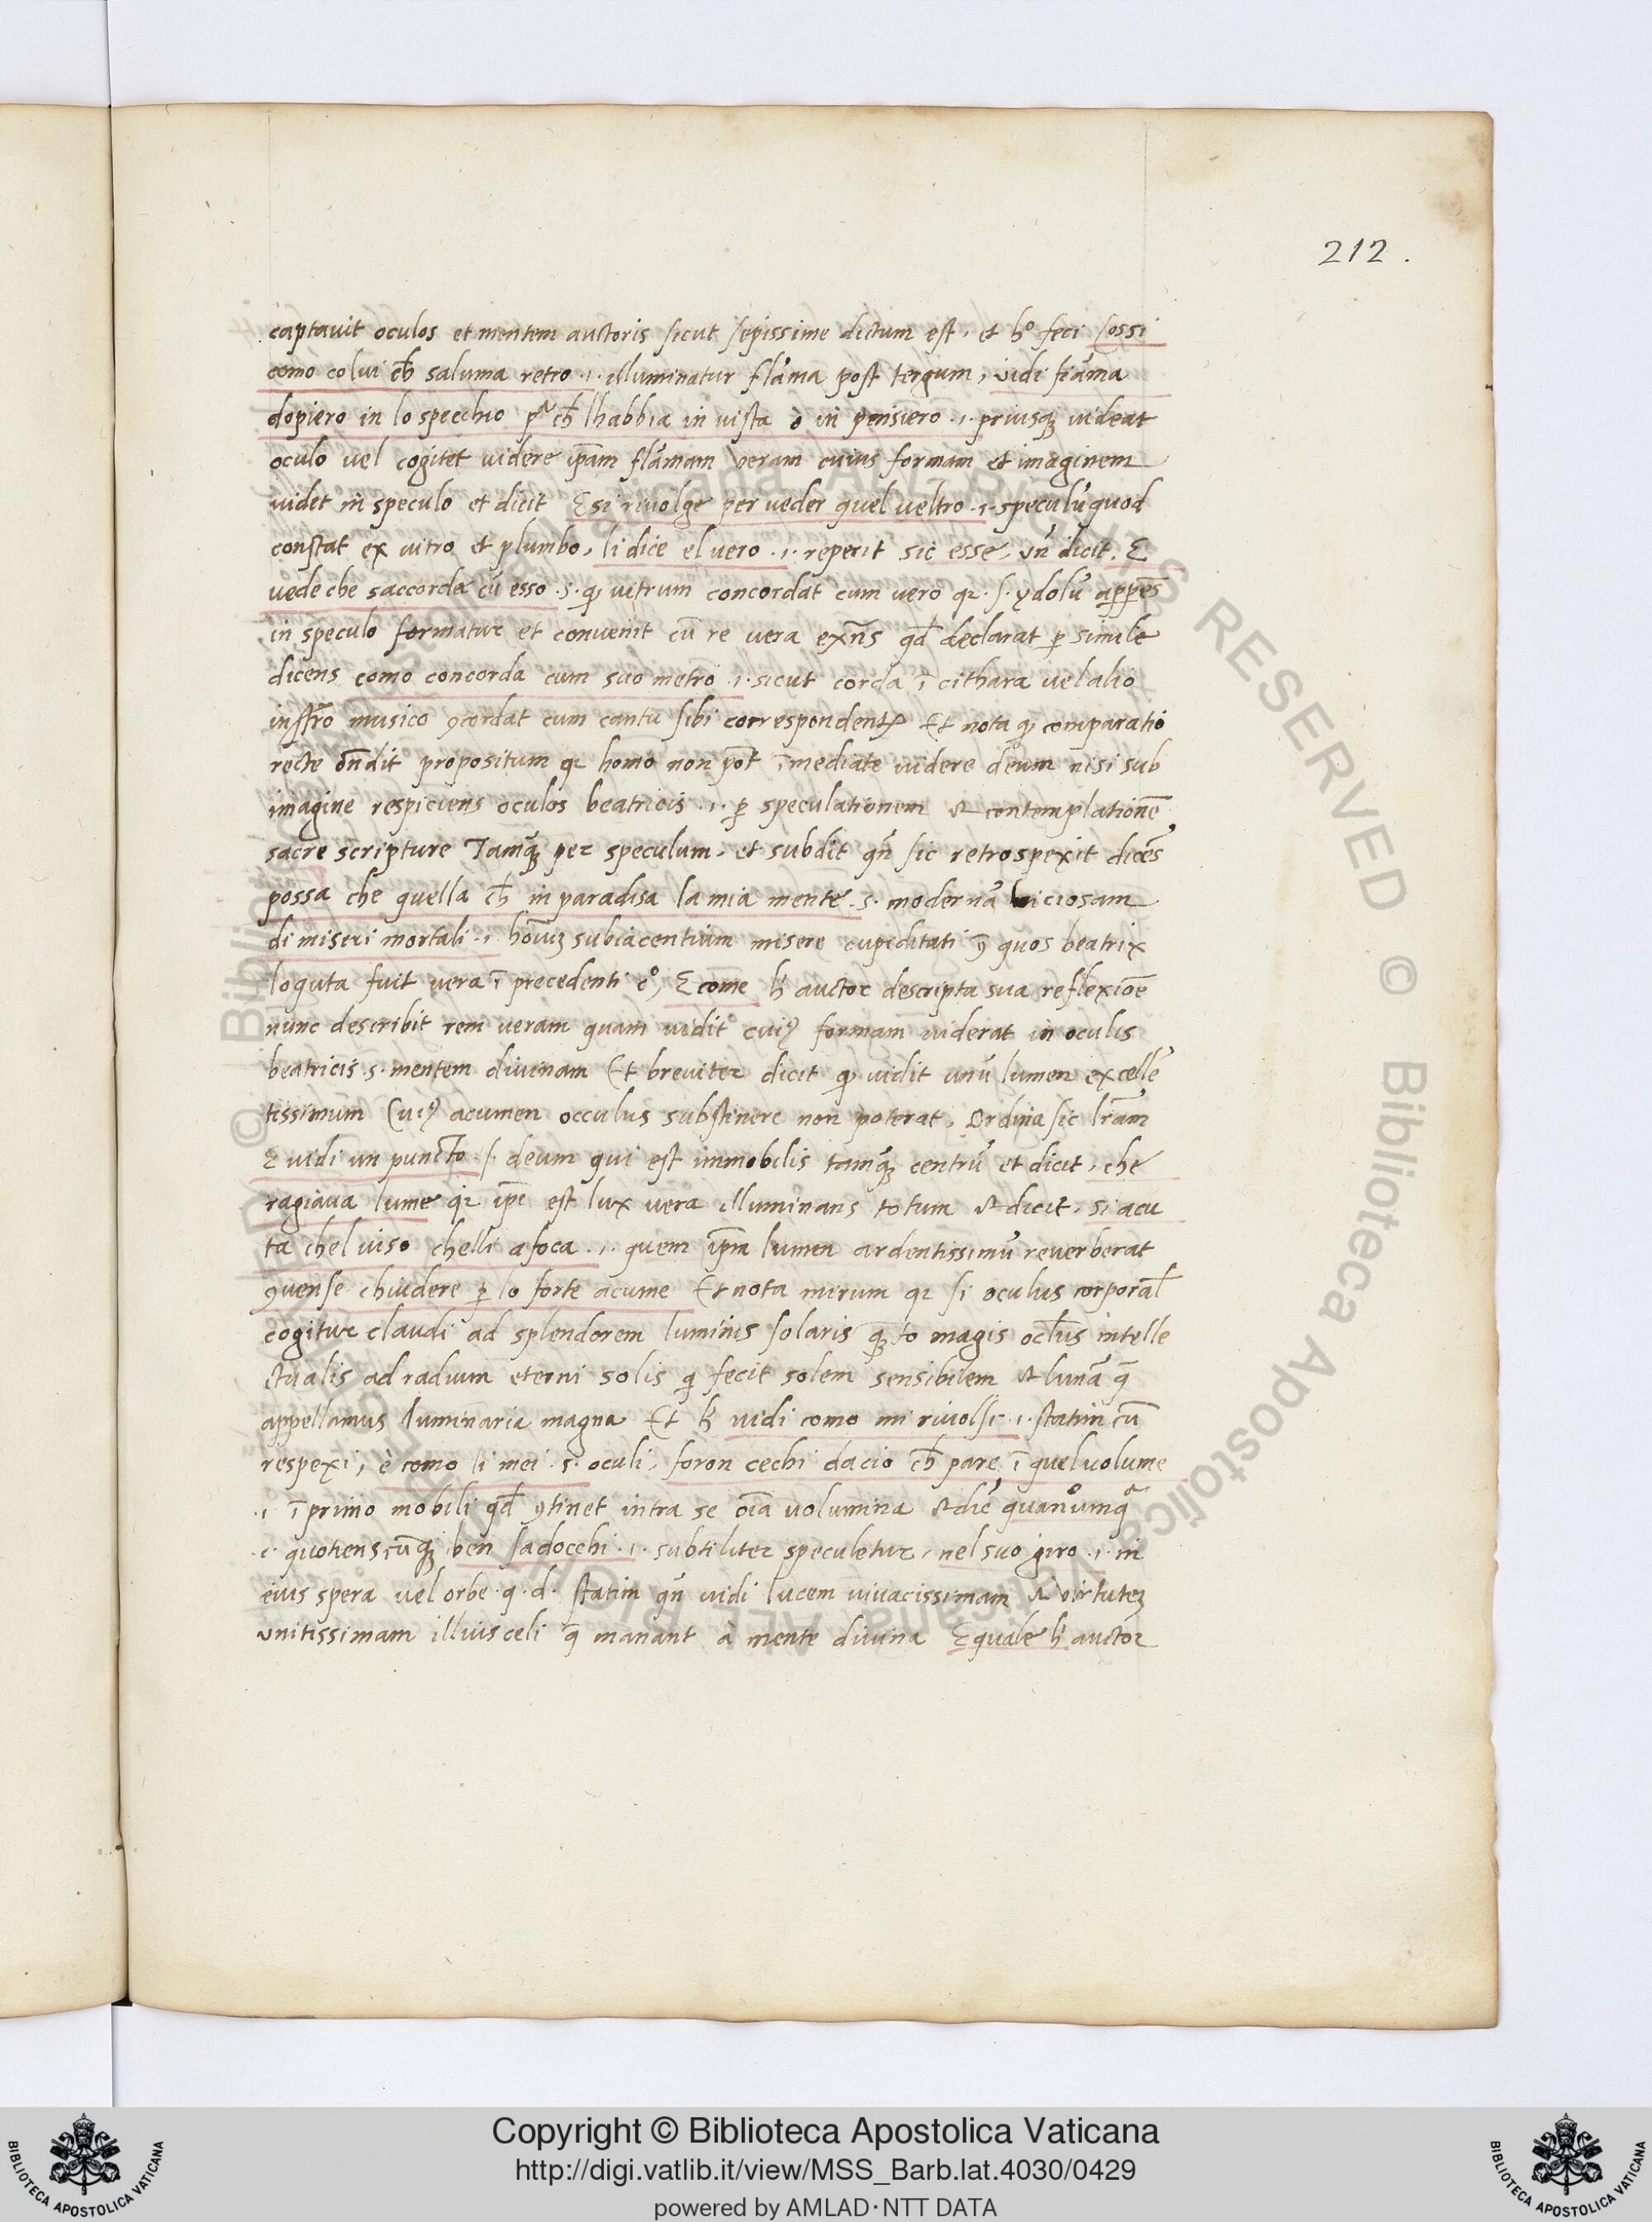 212.
captavit oculos et mentem auctoris sicut sepissime dictum est, et hº feci sossi
como colui ch̄ saluma retro .i. illuminatur flāma post tergum, vidi fiāma
dopiero in lo specchio pª ch̄ lhabbia in vista ò in pensiero .i. priusqȝ videat
oculo vel cogitet videre ip̄am flāmam veram cuius formam et imaginem
videt in speculo et dicit E si rivolge per veder quel veltro .i. speculū quod
constat ex vitro et plumbo, li dice el vero .i. reperit sic esse, vn̄ dicit. E
vede che saccorda cū esso .s. qꝫ vitrum concordat cum vero qꝛ .s. ydolū appēs
in speculo formatur et convenit cū re vera exn̄s qd̄ declarat ꝑ simile
dicens como concorda cum suo metro .i. sicut corda ī cithara vel alio
instr̄o musico ꝯcordat cum cantu sibi correspondente Et nota qꝫ comparatio
recte on̄dit propositum qꝛ homo non pōt īmediate videre deum nisi sub
imagine respiciens oculos beatricis .i. ꝑ speculationem et contemplationē
sacre scripture Tamqȝ per speculum, et subdit qn̄ sic retrospexit dicēs
possa che quella ch̄ in paradisa la mia mente .s. modernā viciosam
di miseri mortali .i. hoīuȝ subiacentium misere cupiditati ꝯ quos beatrix
loquta fuit vera ī precedenti cº, E come h̄ auctor descripta sua reflexiōe
nunc describit rem veram quam vidit cuiꝰ formam viderat in oculis
beatricis .s. mentem divinam Et breviter dicit qꝫ vidit unū lumen excellē
tissimum Cuiꝰ acumen occulus substinere non poterat, Ordina sic lr̄am
E vidi un puncto .s. deum qui est immobilis tamqȝ centrū et dicit, che
ragiava lume qꝛ ip̄e est lux vera illuminans totum et dicit, si acu
ta chel viso chelli afoca .i. quem ip̄m lumen ardentissimū reverberat
ꝯvense chiudere ꝑ lo forte acume Et nota mirum qꝛ si oculus corporal̄
cogitur claudi ad splendorem luminis solaris qȝto magis ocl̄us intelle
ctualis ad radium eterni solis qi fecit solem sensibilem et lunā q̄
appellamus luminaria magna Et h̄ vidi como mi rivolsi .i. statim cū
respexi, è como li mei .s. oculi, foron cechi dacio ch̄ pare ī quel volume
.i. ī primo mobili qd̄ ꝯtinet intra se oīa volumina et dic̄ quanūmqª
.i. quotienscūqȝ ben sadocchi .i. subtiliter speculetur, nel suo giro .i. in
eius spera vel orbe .q.d. statim qn̄ vidi lucem vivacissimam et virtuteȝ
unitissimam illius celi q̄ manant à mente divina E quale h̄ auctor
Copyright © Biblioteca Apostolica Vaticana
http://digi.vatlib.it/view/MSS_Barb.lat.4030/0429
powered by AMLAD·NTT DATA
BIBLIOTECA APOSTOLICA VATICANA
BIBLIOTECA APOSTOLICA VATICANA